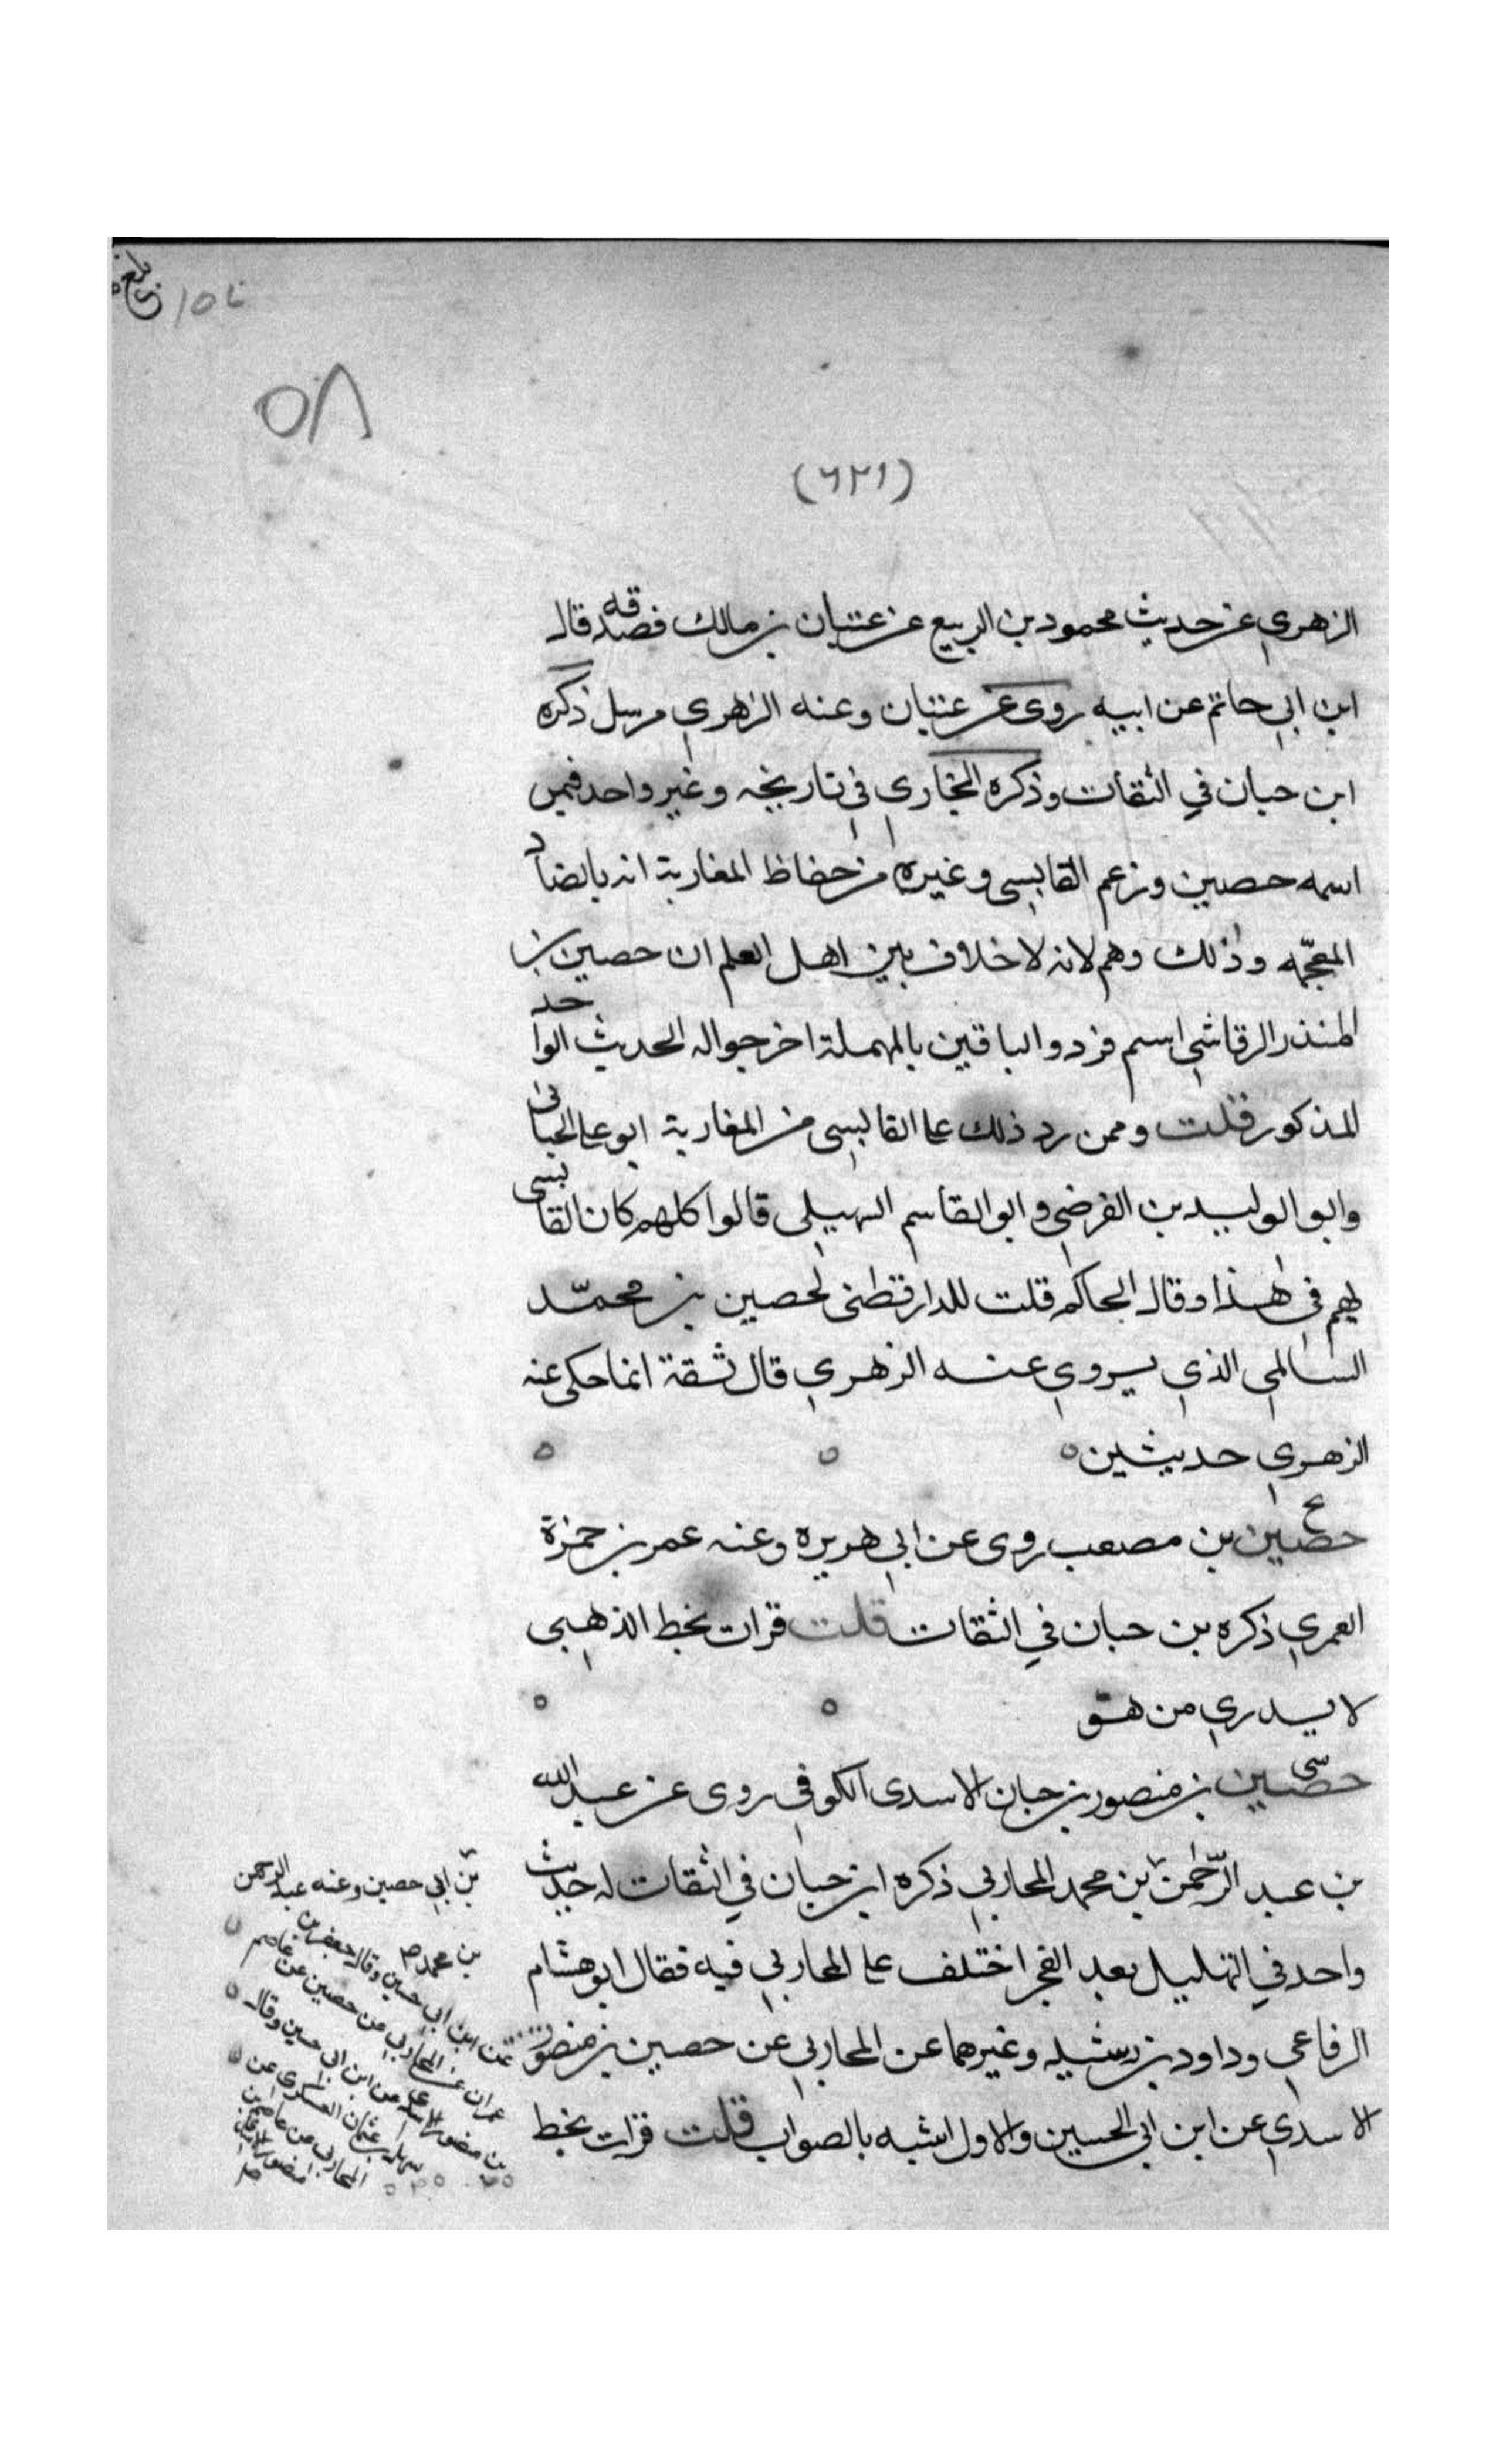 بلغ
٥٨
(٦٢١)
الزهري عن حديث محمود بن الربيع عن عتبان بن مالك فصدقه قال
ابن ابي حاتم عن ابيه روى عن عتبان وعنه الزهري مرسل ذكره
ابن حبان في الثقات وذكره البخاري في تاريخه وغير واحد فيمن
اسمه حصين وزعم القابسي وغيره من حفاظ المغاربة انه بالضاد
المعجمه وذلك وهم لانه لا خلاف بين اهل العلم ان حصين بن
المنذر الرقاشي اسم فرد والباقين بالمهملة اخرجوا له الحديث الواحد
المذكور قلت وممن رد ذلك على القابسي من المغاربة ابو على الجياني
وابو الوليد بن الفرضي وابو القاسم السهيلي قالوا كلهم كان القابسي
يهم في هذا وقال الحاكم قلت للدارقطني لحصين بن محمد
السالمي الذي يروي عنه الزهري قال ثقة انما حكى عنه
الزهري حديثين
حصين بن مصعب روى عن ابي هريره وعنه عمر بن حمزة
العمري ذكره بن حبان في الثقات قلت قرات بخط الذهبي
لا يدري من هو
سى
حصين بن منصور بن حبان الاسدى الكوفي روى عن عبد الله
بن عبد الرحمن بن محمد المحاربي ذكره ابن حبان في الثقات له حديث
واحد في التهليل بعد الفجر اختلف على المحاربي فيه فقال ابو هشام
الرفاعي وداود بن رشيد وغيرهما عن المحاربي عن حصين بن منصور
الاسدي عن ابن ابي الحسين والاول اشبه بالصواب قلت قرات بخط
بن ابي حصين وعنه عبد الرحمن
بن محمد صح
عن ابن ابي حسين وقال جعفر بن
عمران عن المحاربي عن حصين عن عاصم
بن منصور الاسدي عن ابن ابي حسين وقال
سهل بن عثمان العسكرى عن
المحاربي عن عاصم بن
منصور الاسدي
صح